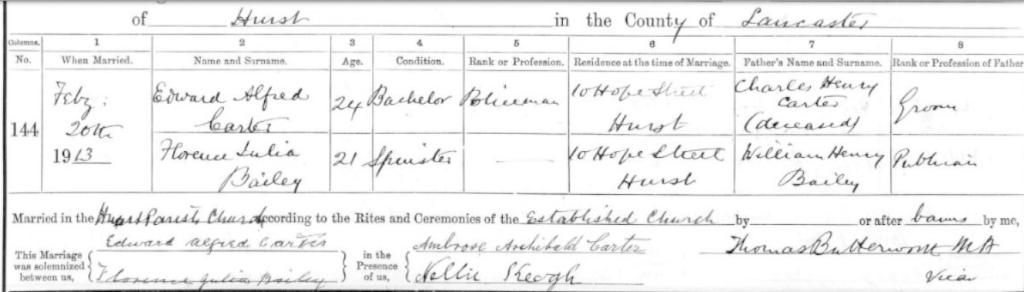 of Hurst in the County of Lancaster
Columns. 1 2 3 4 5 6 7 8
No. When Married. Name and Surname. Age. Condition. Rank or Profession. Residence at the time of Marriage. Father's Name and Surname. Rank or Profession of Father
144 Feby: 20th 1913
Edward Alfred Carter 24 Bachelor Policeman 10 Hope Street Hurst Charles Henry Carter (deceased) Groom
Florence Julia Bailey 21 Spinster 10 Hope Street Hurst William Henry Bailey Publican
Married in the Hurst Parish Church according to the Rites and Ceremonies of the Established Church by or after banns by me,
This Marriage was solemnized between us, Edward Alfred Carter Florence Julia Bailey
in the Presence of us, Ambrose Archibald Carter Nellie Keogh
Thomas Butterworth MA
Vicar